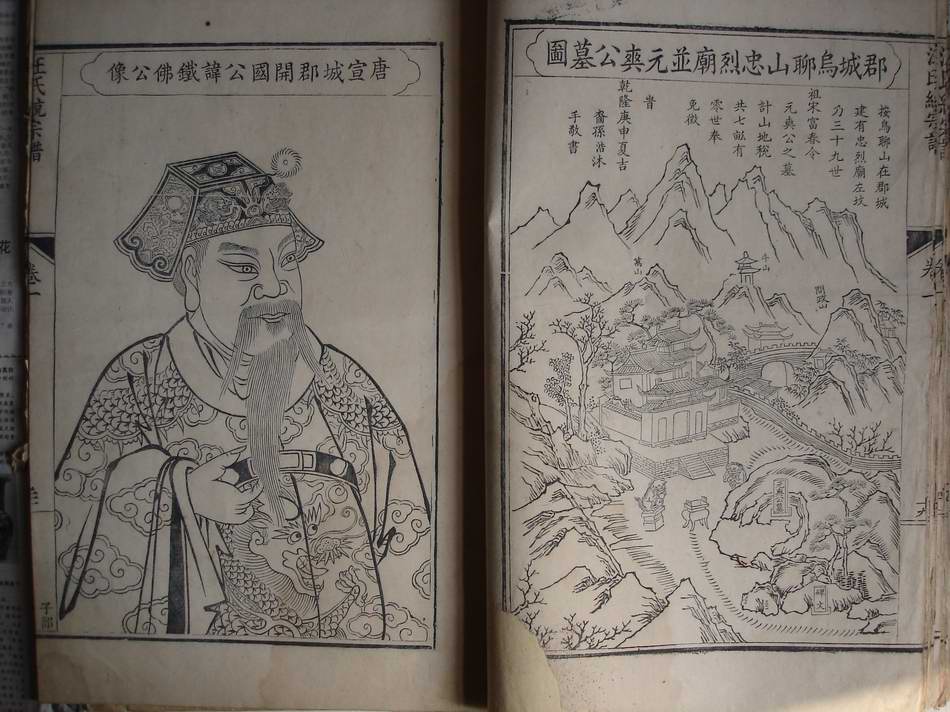 郡城烏聊山忠烈廟並元奭公墓圖
按烏聊山在郡城
建有忠烈廟左坟
乃三十九世
祖宋富春令
元奭公之墓
計山地稅
共七畝有
零世奉
免徵
旹
乾隆庚申夏吉
裔孫浩沐
手敬書
斗山
萬山
問政山
元奭公墓
碑文
卷一
唐宣城郡開國公諱鐵佛公像
汪氏統宗譜
卷一